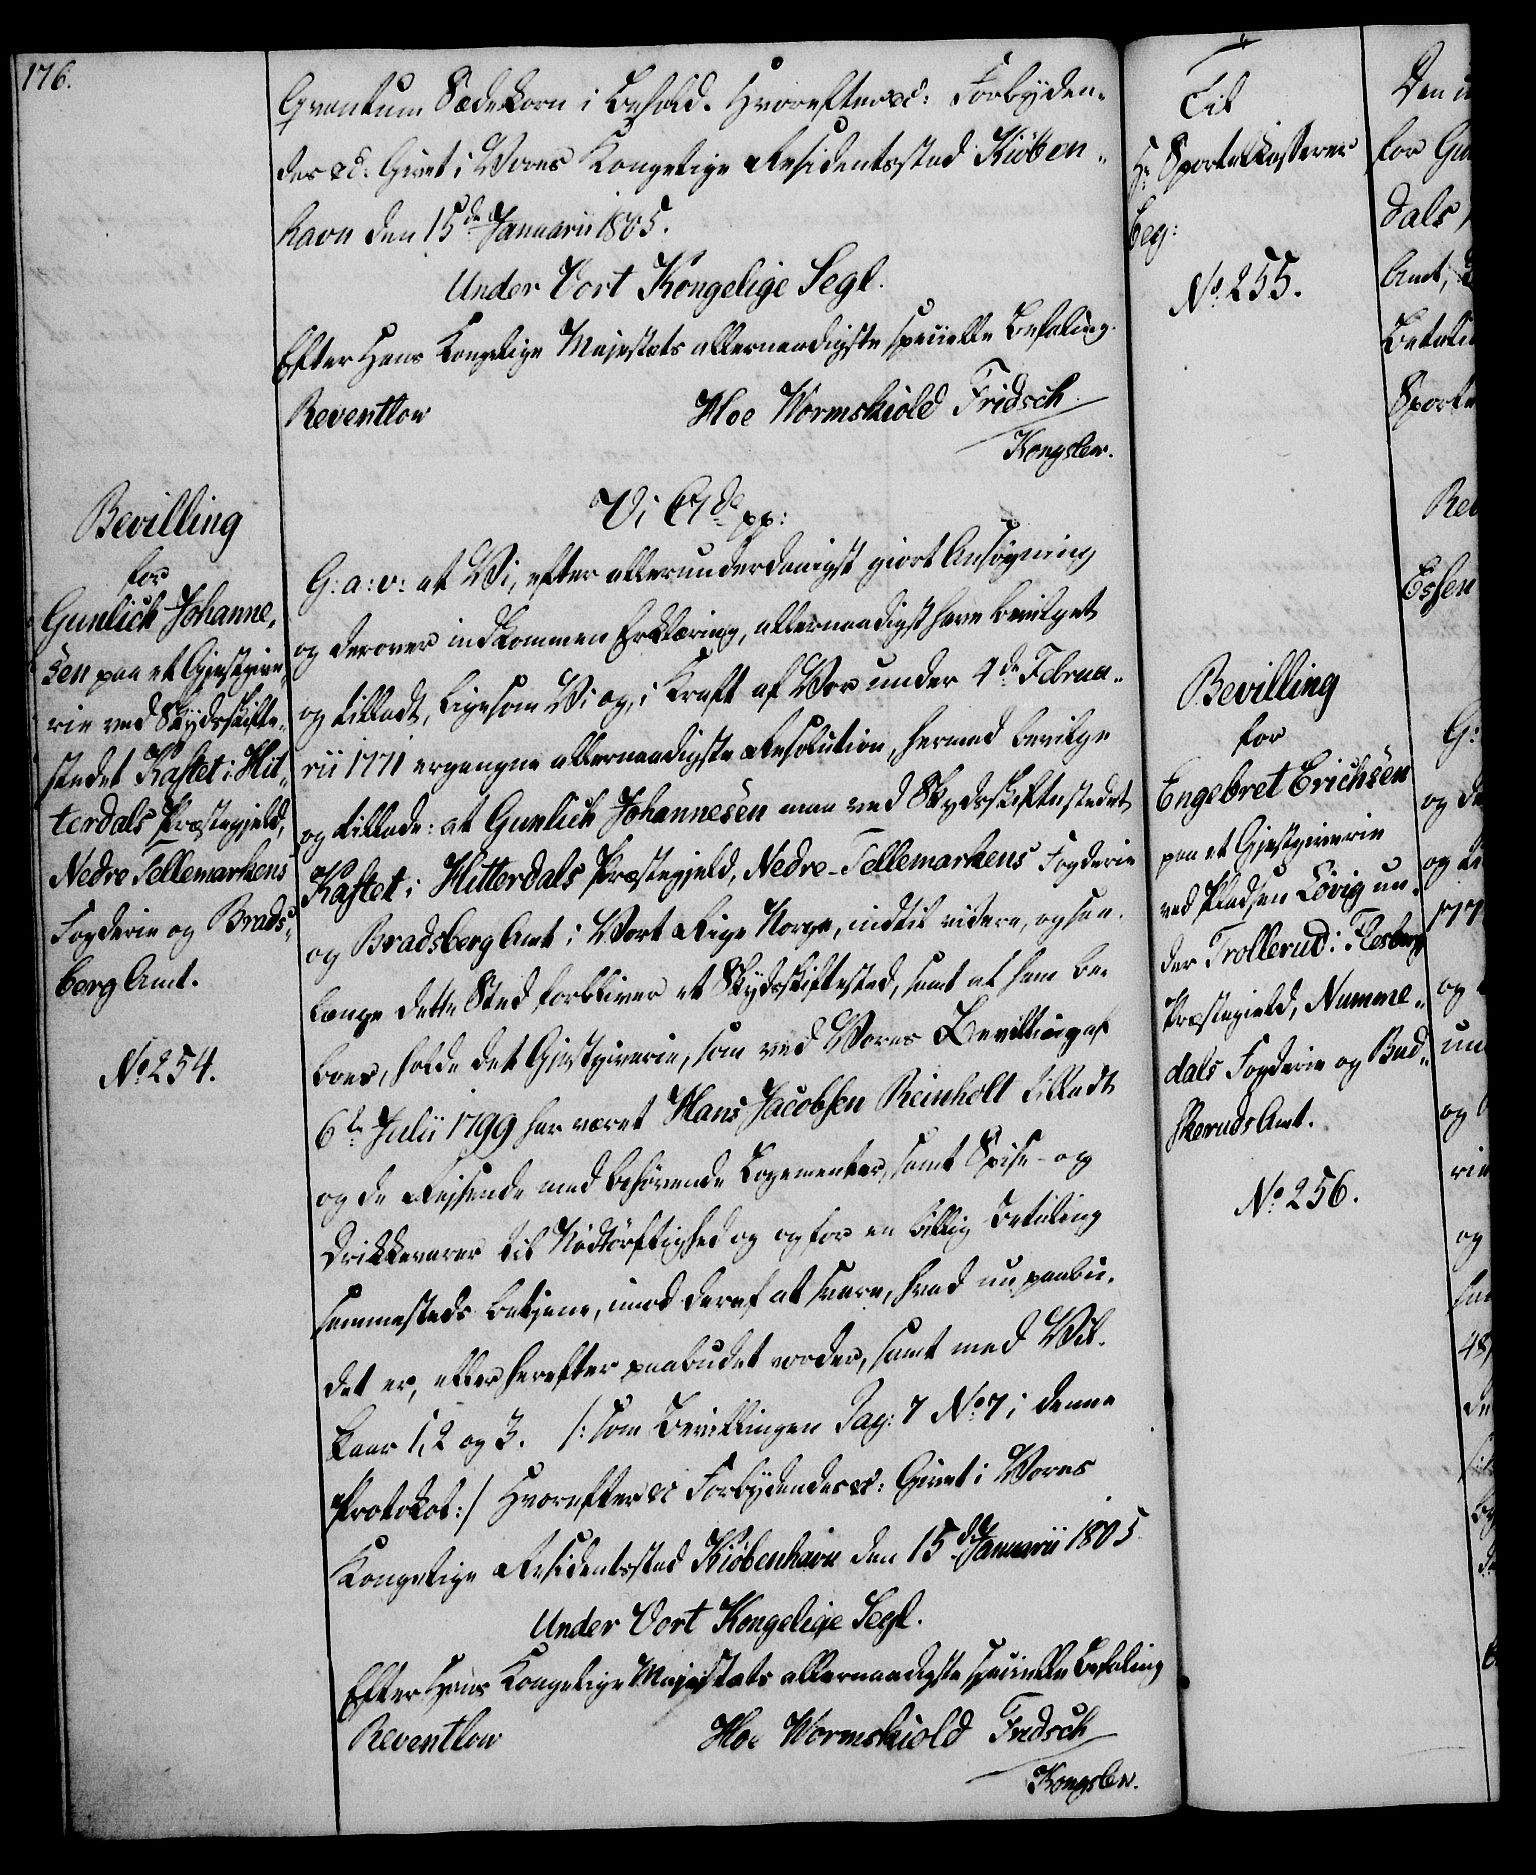 176.
Qvantum Sædekorn i Behold. Hvorefter &c: Forbyden-
des &c: Givet i Vores Kongelige Residentsstad Kiöben-
havn den 15de Januarii 1805.
Under Vort Kongelige Segl.
Efter Hans Kongelige Majestæts allernaadigste specielle Befaling.
Reventlow Hoe Wormskiold Fridsch
Kongslew.
Bevilling
for
Gunlich Johanne-
sen paa et Gjestgive-
rie ved Skydsskifte-
stedet Kastet i Hit-
terdals Præstegjeld,
Nedre Tellemarkens
Fogderie og Brads-
berg Amt.
No 254.
Vi C7de pp:
G: a: v: at Vi, efter allerunderdanigst giort Ansøgning
og derover indkommen Erklæring, allernaadigst have bevilget
og tilladt, ligesom Vi og, i Kraft af Vor under 4de Februa-
rii 1771 ergangne allernaadigste Resolution, hermed bevilge
og tillade: at Gunlich Johannesen maa ved Skydsskiftestedet
Kastet i Hitterdals Præstegjeld, Nedre-Tellemarkens Fogderie
og Bradsberg Amt i Vort Rige Norge, indtil videre, og saa-
længe dette Sted forbliver et Skydsskiftested, samt at ham be-
boer, holde det Gjestgiverie, som ved Vores Bevilling af
6te Julii 1799 har været Hans Jacobsen Reinholt tilladt
og de Reisende med behövende Logementer, samt Spise- og
Drikkevarer til Nödtörftighed og og for en billig Betaling
sammesteds betjene, imod deraf at svare, hvad nu paabu-
det er, eller herefter paabudet vorder, samt med Vil-
kaar 1, 2 og 3. /: som Bevillingen Pag: 7 No 7 i denne
Protokol :/ Hvorefter &c Forbydendes &c: Givet i Vores
Kongelige Residentsstad Kiöbenhavn den 15de Januarii 1805
Under Vort Kongelige Segl.
Efter Hans Kongelige Majestæts allernaadigste specielle Befaling
Reventlow Hoe Wormskiold Fridsch
Kongslew.
Til
Hr Sportelkasserer
Bey:
No 255.
Bevilling
for
Engebret Erichsen
paa et Gjestgiverie
ved Pladsen Lövig un-
der Trollerud i Flesberg
Præstegield, Numme-
dals Fogderie og Bud-
skeruds Amt.
No 256.
Den
for Gu
dals
Amt,
Betalin
Sporte
Rev
Essen
G:
og de
og
177
og
un
og
rie
og
48